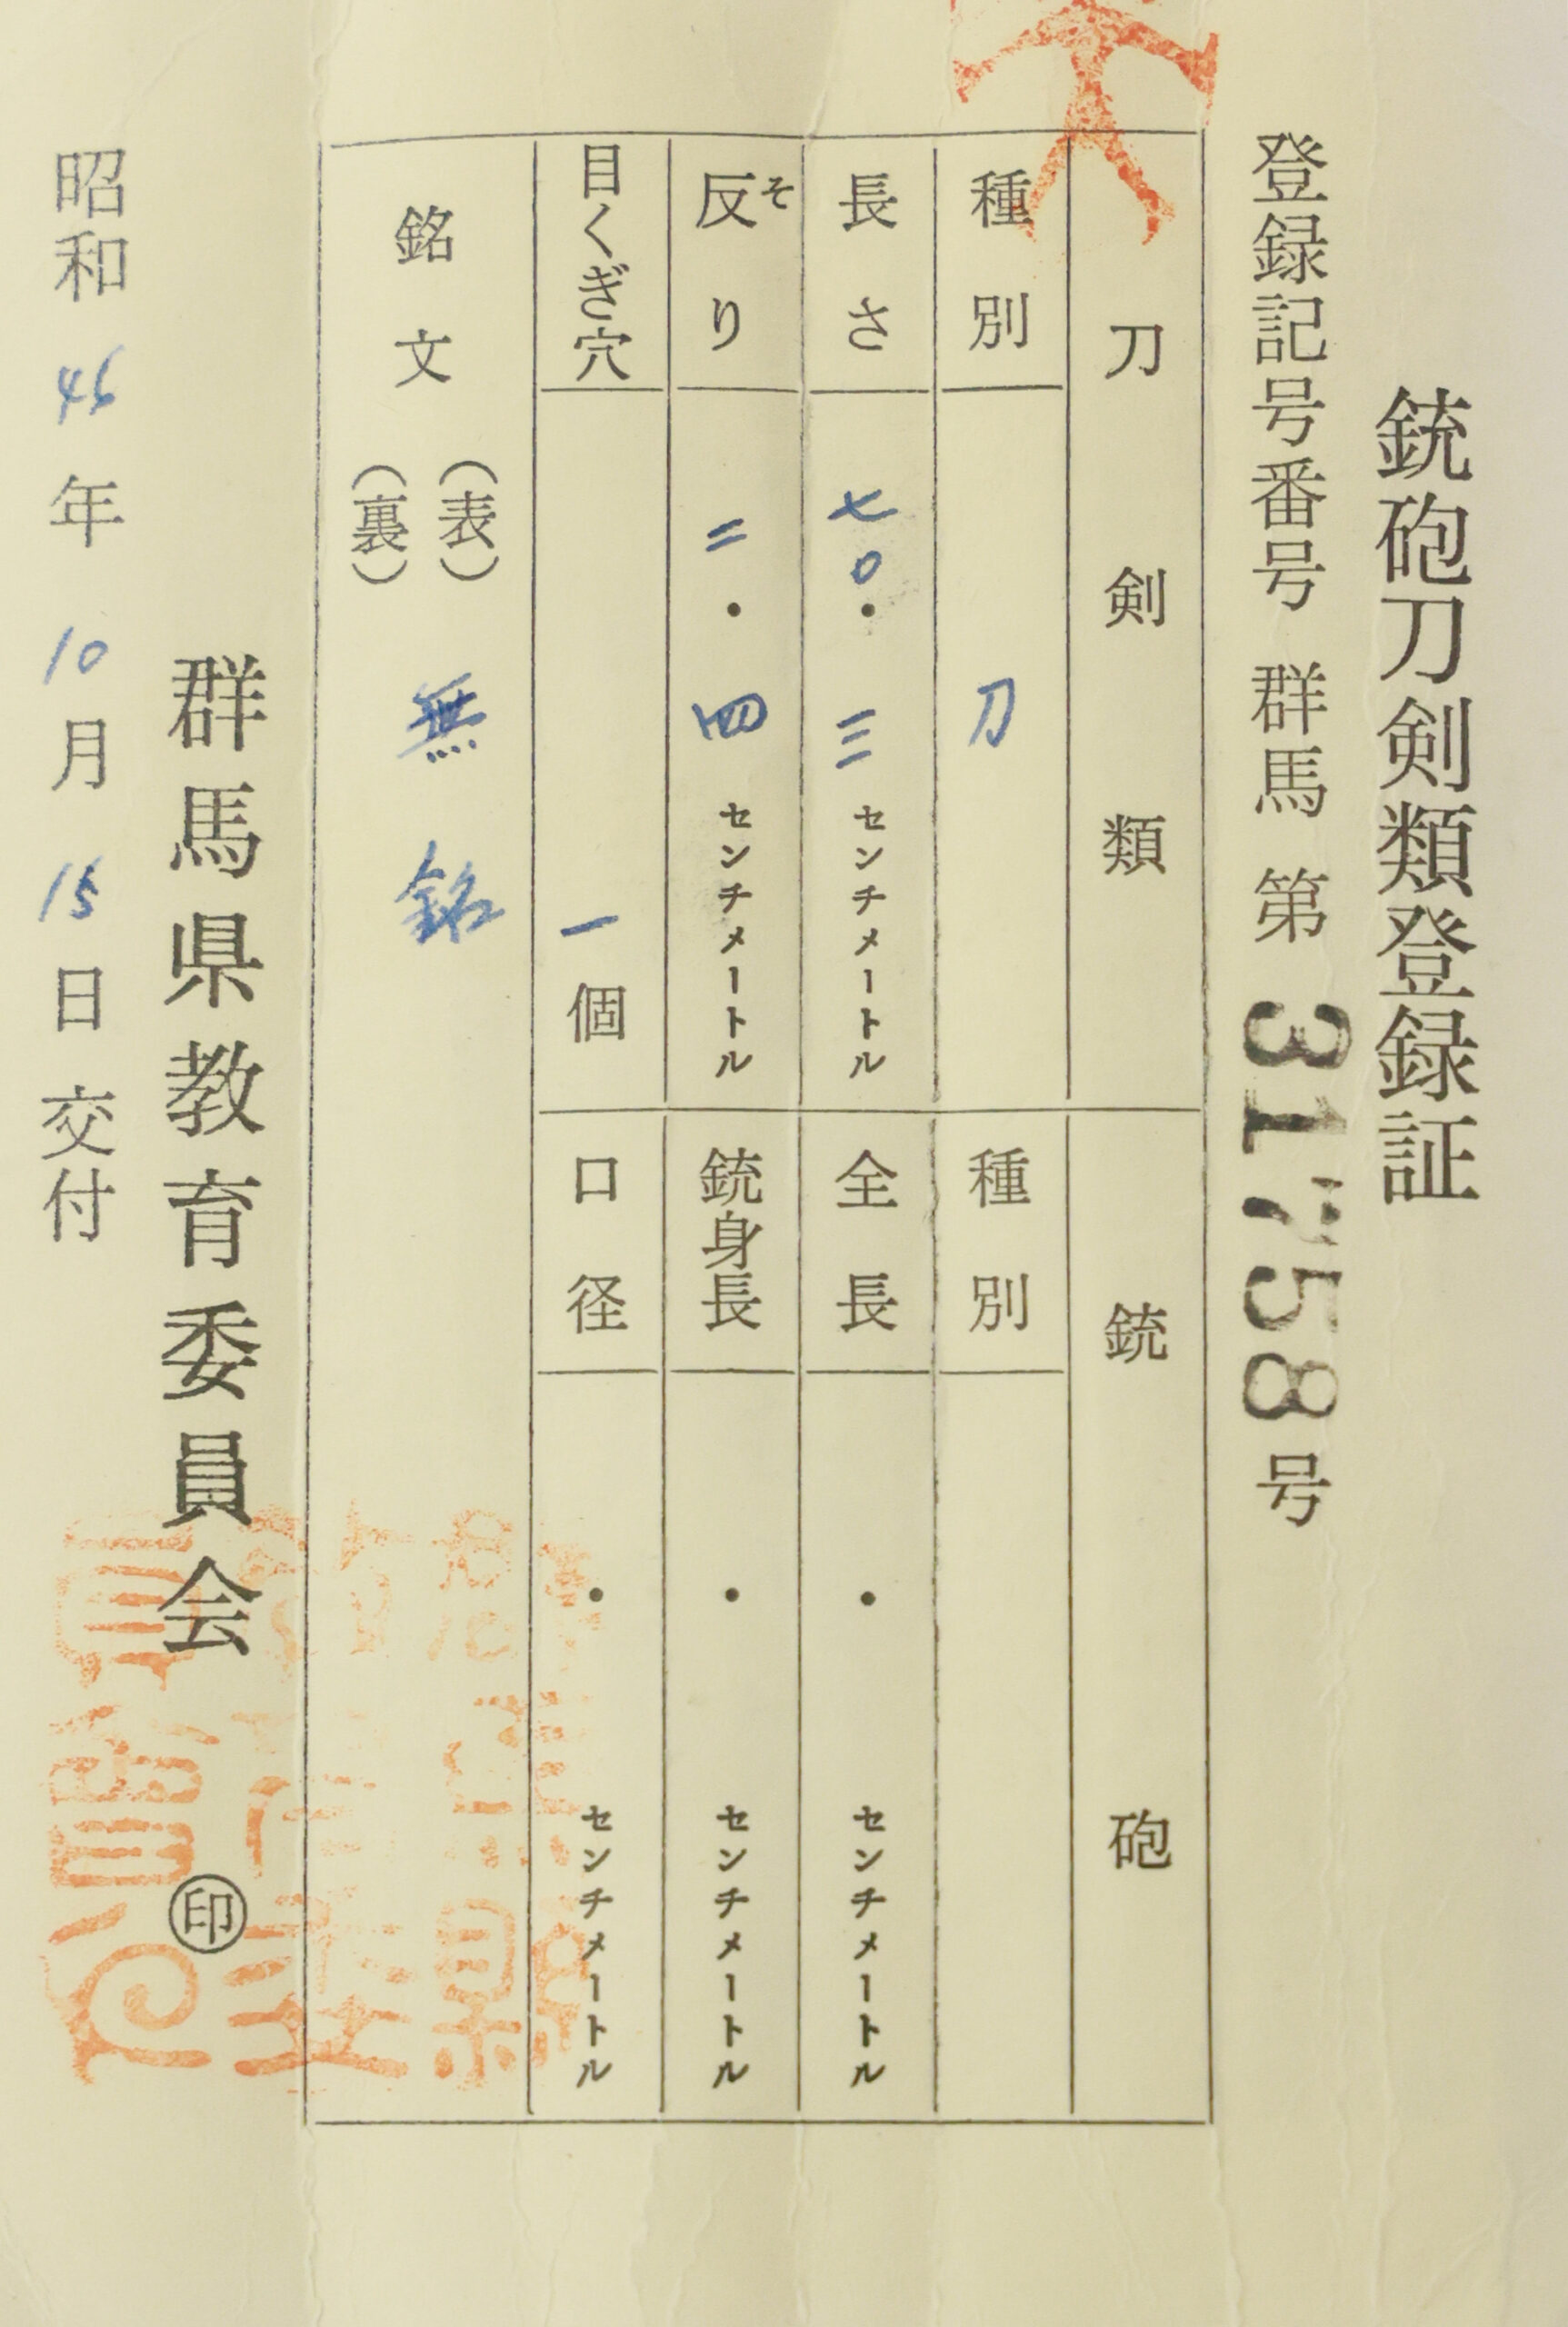 銃砲刀剣類登録証
登録記号番号 群馬 第 31758 号
刀剣類
種別 刀
長さ 七〇・三 センチメートル
反り そ 二・四 センチメートル
目くぎ穴 一個
銃砲
種別
全長 ・ センチメートル
銃身長 ・ センチメートル
口径 ・ センチメートル
銘文 (表) 無銘
(裏)
群馬県教育委員会 印
昭和 46 年 10 月 15 日 交付